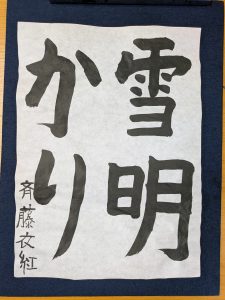 雪明
かり
斉藤衣紅